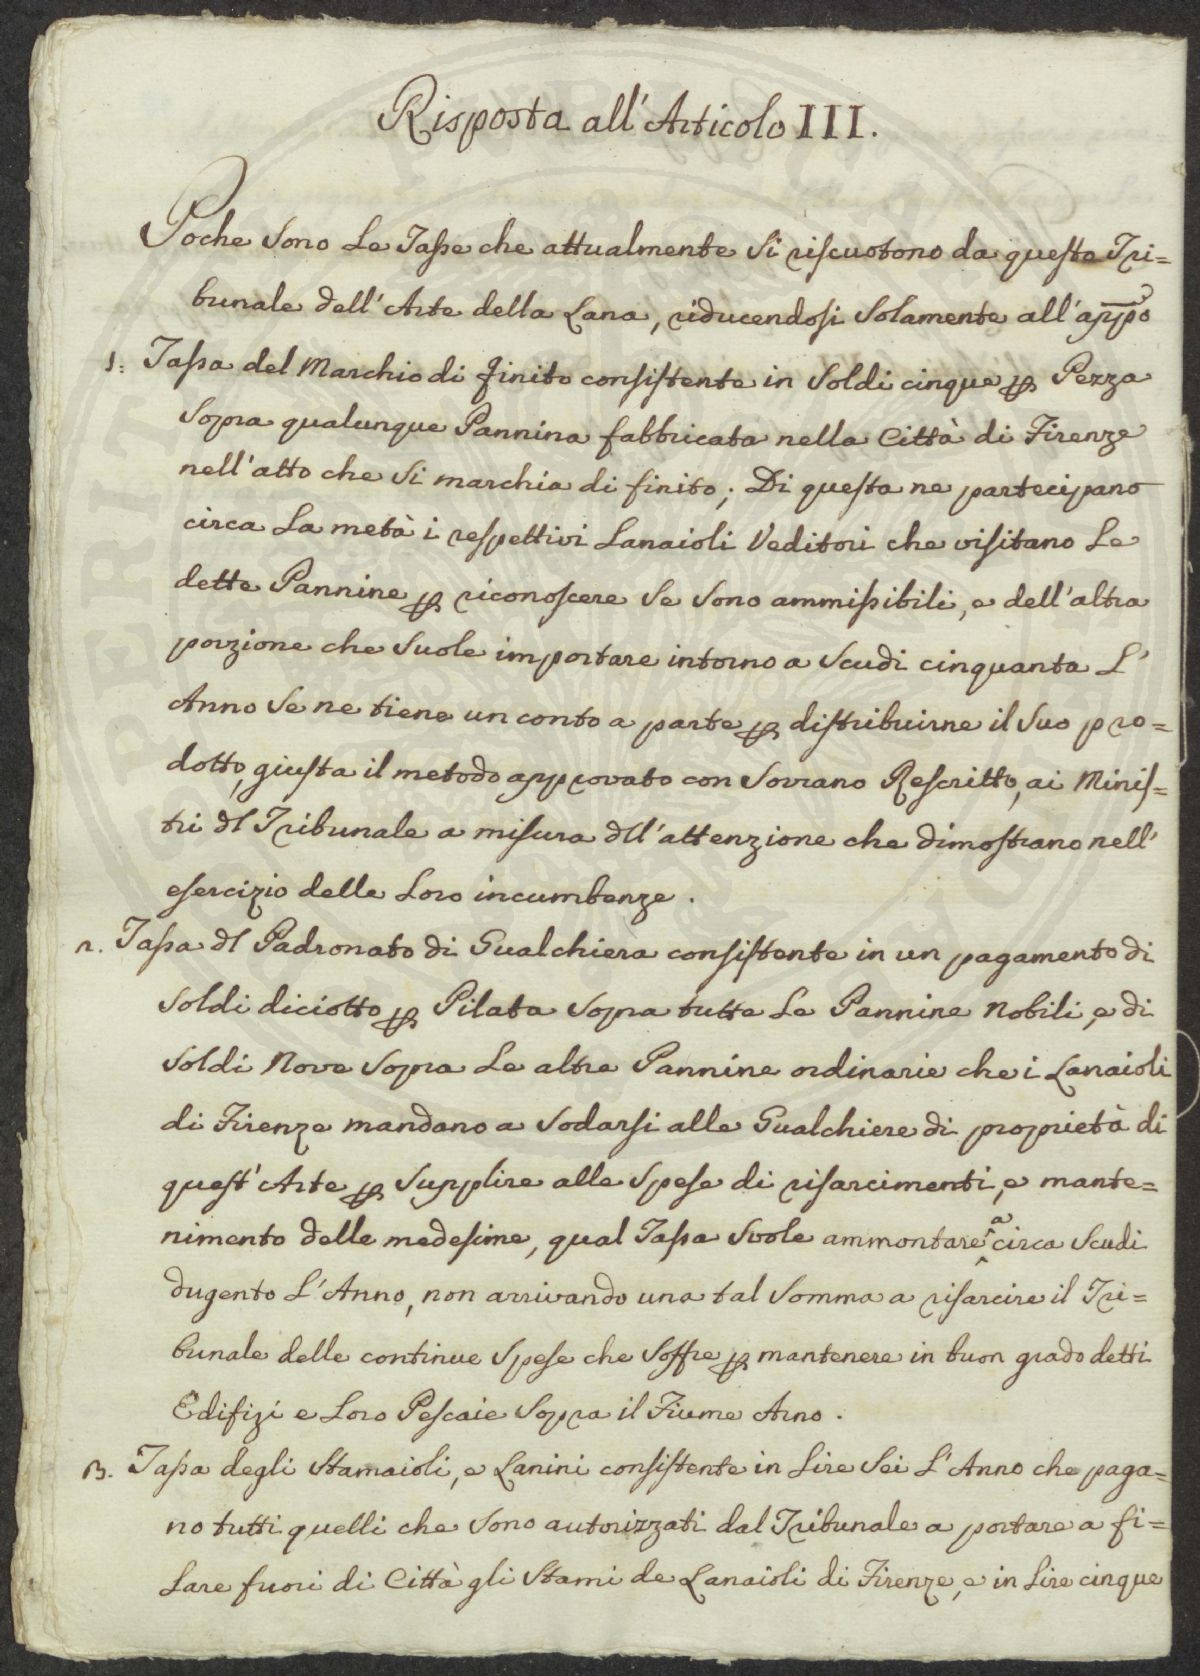 Risposta all'Articolo III.
Poche sono le Tasse che attualmente si riscuotono da questo Tri=
bunale dell'Arte della Lana, riducendosi solamente all'appo
1. Tassa del Marchio di finito consistente in soldi cinque p Pezza
sopra qualunque Pannina fabbricata nella Città di Firenze
nell'atto che si marchia di finito; Di questa ne partecipano
circa la metà i respettivi Lanaioli Veditori che visitano le
dette Pannine p riconoscere se sono ammissibili, e dell'altra
porzione che suole importare intorno a scudi cinquanta l'
Anno se ne tiene un conto a parte p distribuirne il suo pro=
dotto, giusta il metodo approvato con sovrano Rescritto, ai Minis=
tri dl Tribunale a misura dll'attenzione che dimostrano nell'
esercizio delle loro incumbenze.
2. Tassa dl Padronato di Gualchiera consistente in un pagamento di
soldi diciotto p Pilata sopra tutte le Pannine nobili, e di
soldi nove sopra le altre Pannine ordinarie che i Lanaioli
di Firenze mandano a sodarsi alle Gualchiere di proprietà di
quest'Arte p supplire alle spese di risarcimenti, e mante=
nimento delle medesime, qual Tassa suole ammontare a circa scudi
dugento l'Anno, non arrivando una tal somma a risarcire il Tri=
bunale delle continue spese che soffre p mantenere in buon grado detti
Edifizi e loro Pescaie sopra il Fiume Arno.
3. Tassa degli Stamaioli, e Lanini consistente in lire sei l'Anno che paga=
no tutti quelli che sono autorizzati dal Tribunale a portare a fi=
lare fuori di Città gli Stami de Lanaioli di Firenze, e in lire cinque